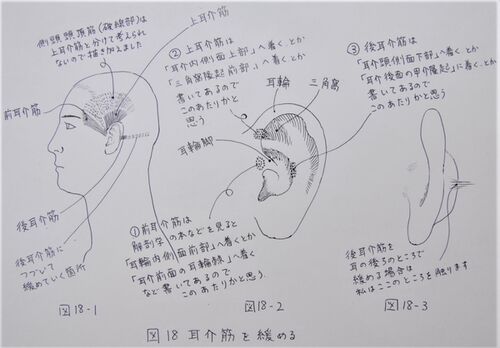 側頭頭頂筋（破線部）は
上耳介筋と分けて考えられ
ないので描き加えました
上耳介筋
前耳介筋
後耳介筋
後耳介筋に
つづいて
緩めていく箇所
図18-1
②上耳介筋は
「耳介内側面上部」へ着く、とか
「三角窩隆起前部」へ着く、とか
書いてあるので
このあたりかと
思う
耳輪
三角窩
耳輪脚
①前耳介筋は
解剖学の本などを見ると
「耳輪内側面前部」へ着くとか
「耳介前面の耳輪棘」へ着く
など書いてあるので
このあたりかと思う。
図18-2
③後耳介筋は
「耳介頭側面下部」へ着く、とか
「耳介後面の甲介隆起」に着く、とか
書いてあるので
このあたりかと思う
後耳介筋を
耳の後ろのところで
緩める場合は
私はここのところを触ります
図18-3
図18 耳介筋を緩める